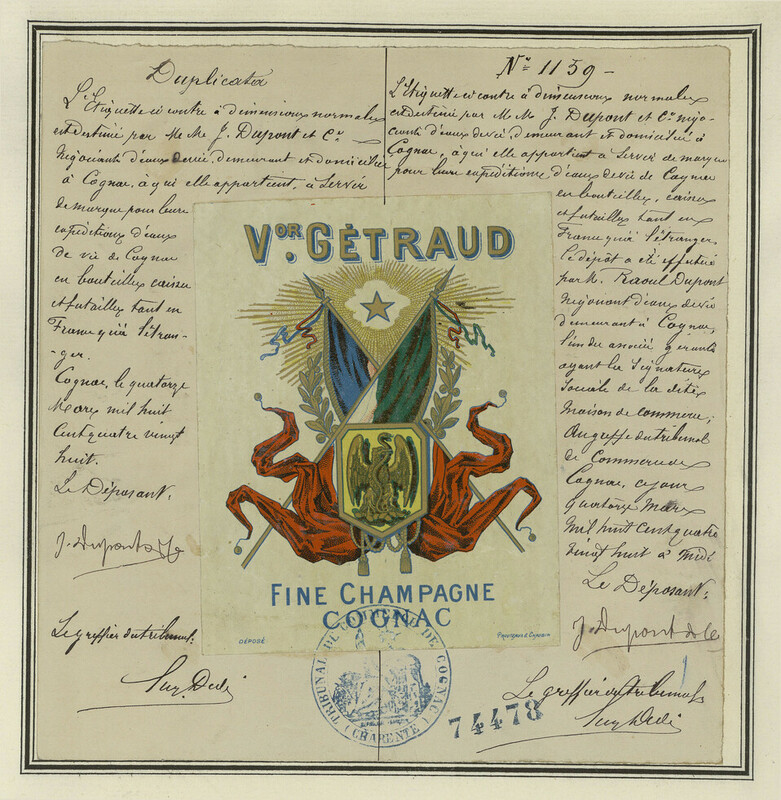 Duplicata
L'Etiquette ci contre à dimensions normales
est destiné par M M J. Dupont et Cie
Négociants d'eaux de vie, demeurant et domiciliés
à Cognac, à qui elle appartient, à servir
de marque pour leurs
expéditions d'eaux
de vie de Cognac
en bouteilles caisses
et futailles tant en
France qu'à l'étran-
-ger.
Cognac, le quatorze
Mars mil huit
cent quatre vingt
huit.
Le Déposant.
J. Dupont & Cie
Le greffier du tribunal.
No 1159 -
L'Etiquette ci contre à dimensions normales
est destiné par M M. J. Dupont et Cie négo-
ciants d'eaux de vie, demeurant et domiciliés à
Cognac, à qui elle appartient à servir de marque
pour leurs expéditions d'eaux de vie de Cognac
en bouteilles, caisses
et futailles tant en
France qu'à l'étranger,
le dépôt a été effectué
par M. Raoul Dupont
négociant d'eaux de vie
demeurant à Cognac,
l'un des associé gérants
ayant la signature
sociale de la dite
maison de commerce;
au greffe du tribunal
de Commerce de
Cognac, ce jour
quatorze Mars
mil huit cent quatre
vingt huit à midi
Le Déposant.
J. Dupont & Cie
Le greffier du tribunal
VOR. GÉTRAUD
FINE CHAMPAGNE
COGNAC
DÉPOSÉ
TRIBUNAL DE COMMERCE DE COGNAC
(CHARENTE)
74478